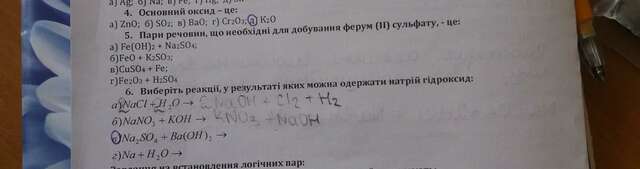 а) Ag; б) Na; в) Fe; г) Hg; д)
4. Основний оксид – це:
а) ZnO; б) SO₂; в) BaO; г) Cr₂O₃; д) K₂O
5. Пари речовин, що необхідні для добування ферум (ІІ) сульфату, - це:
а) Fe(OH)₂ + Na₂SO₄;
б)FeO + K₂SO₃;
в)CuSO₄ + Fe;
г)Fe₂O₃ + H₂SO₄
6. Виберіть реакції, у результаті яких можна одержати натрій гідроксид:
а)NaCl + H₂O → NaOH + Cl₂ + H₂
б)NaNO₃ + KOH → KNO₃ + NaOH
в)Na₂SO₄ + Ba(OH)₂ →
г)Na + H₂O →
Завдання на встановлення логічних пар: